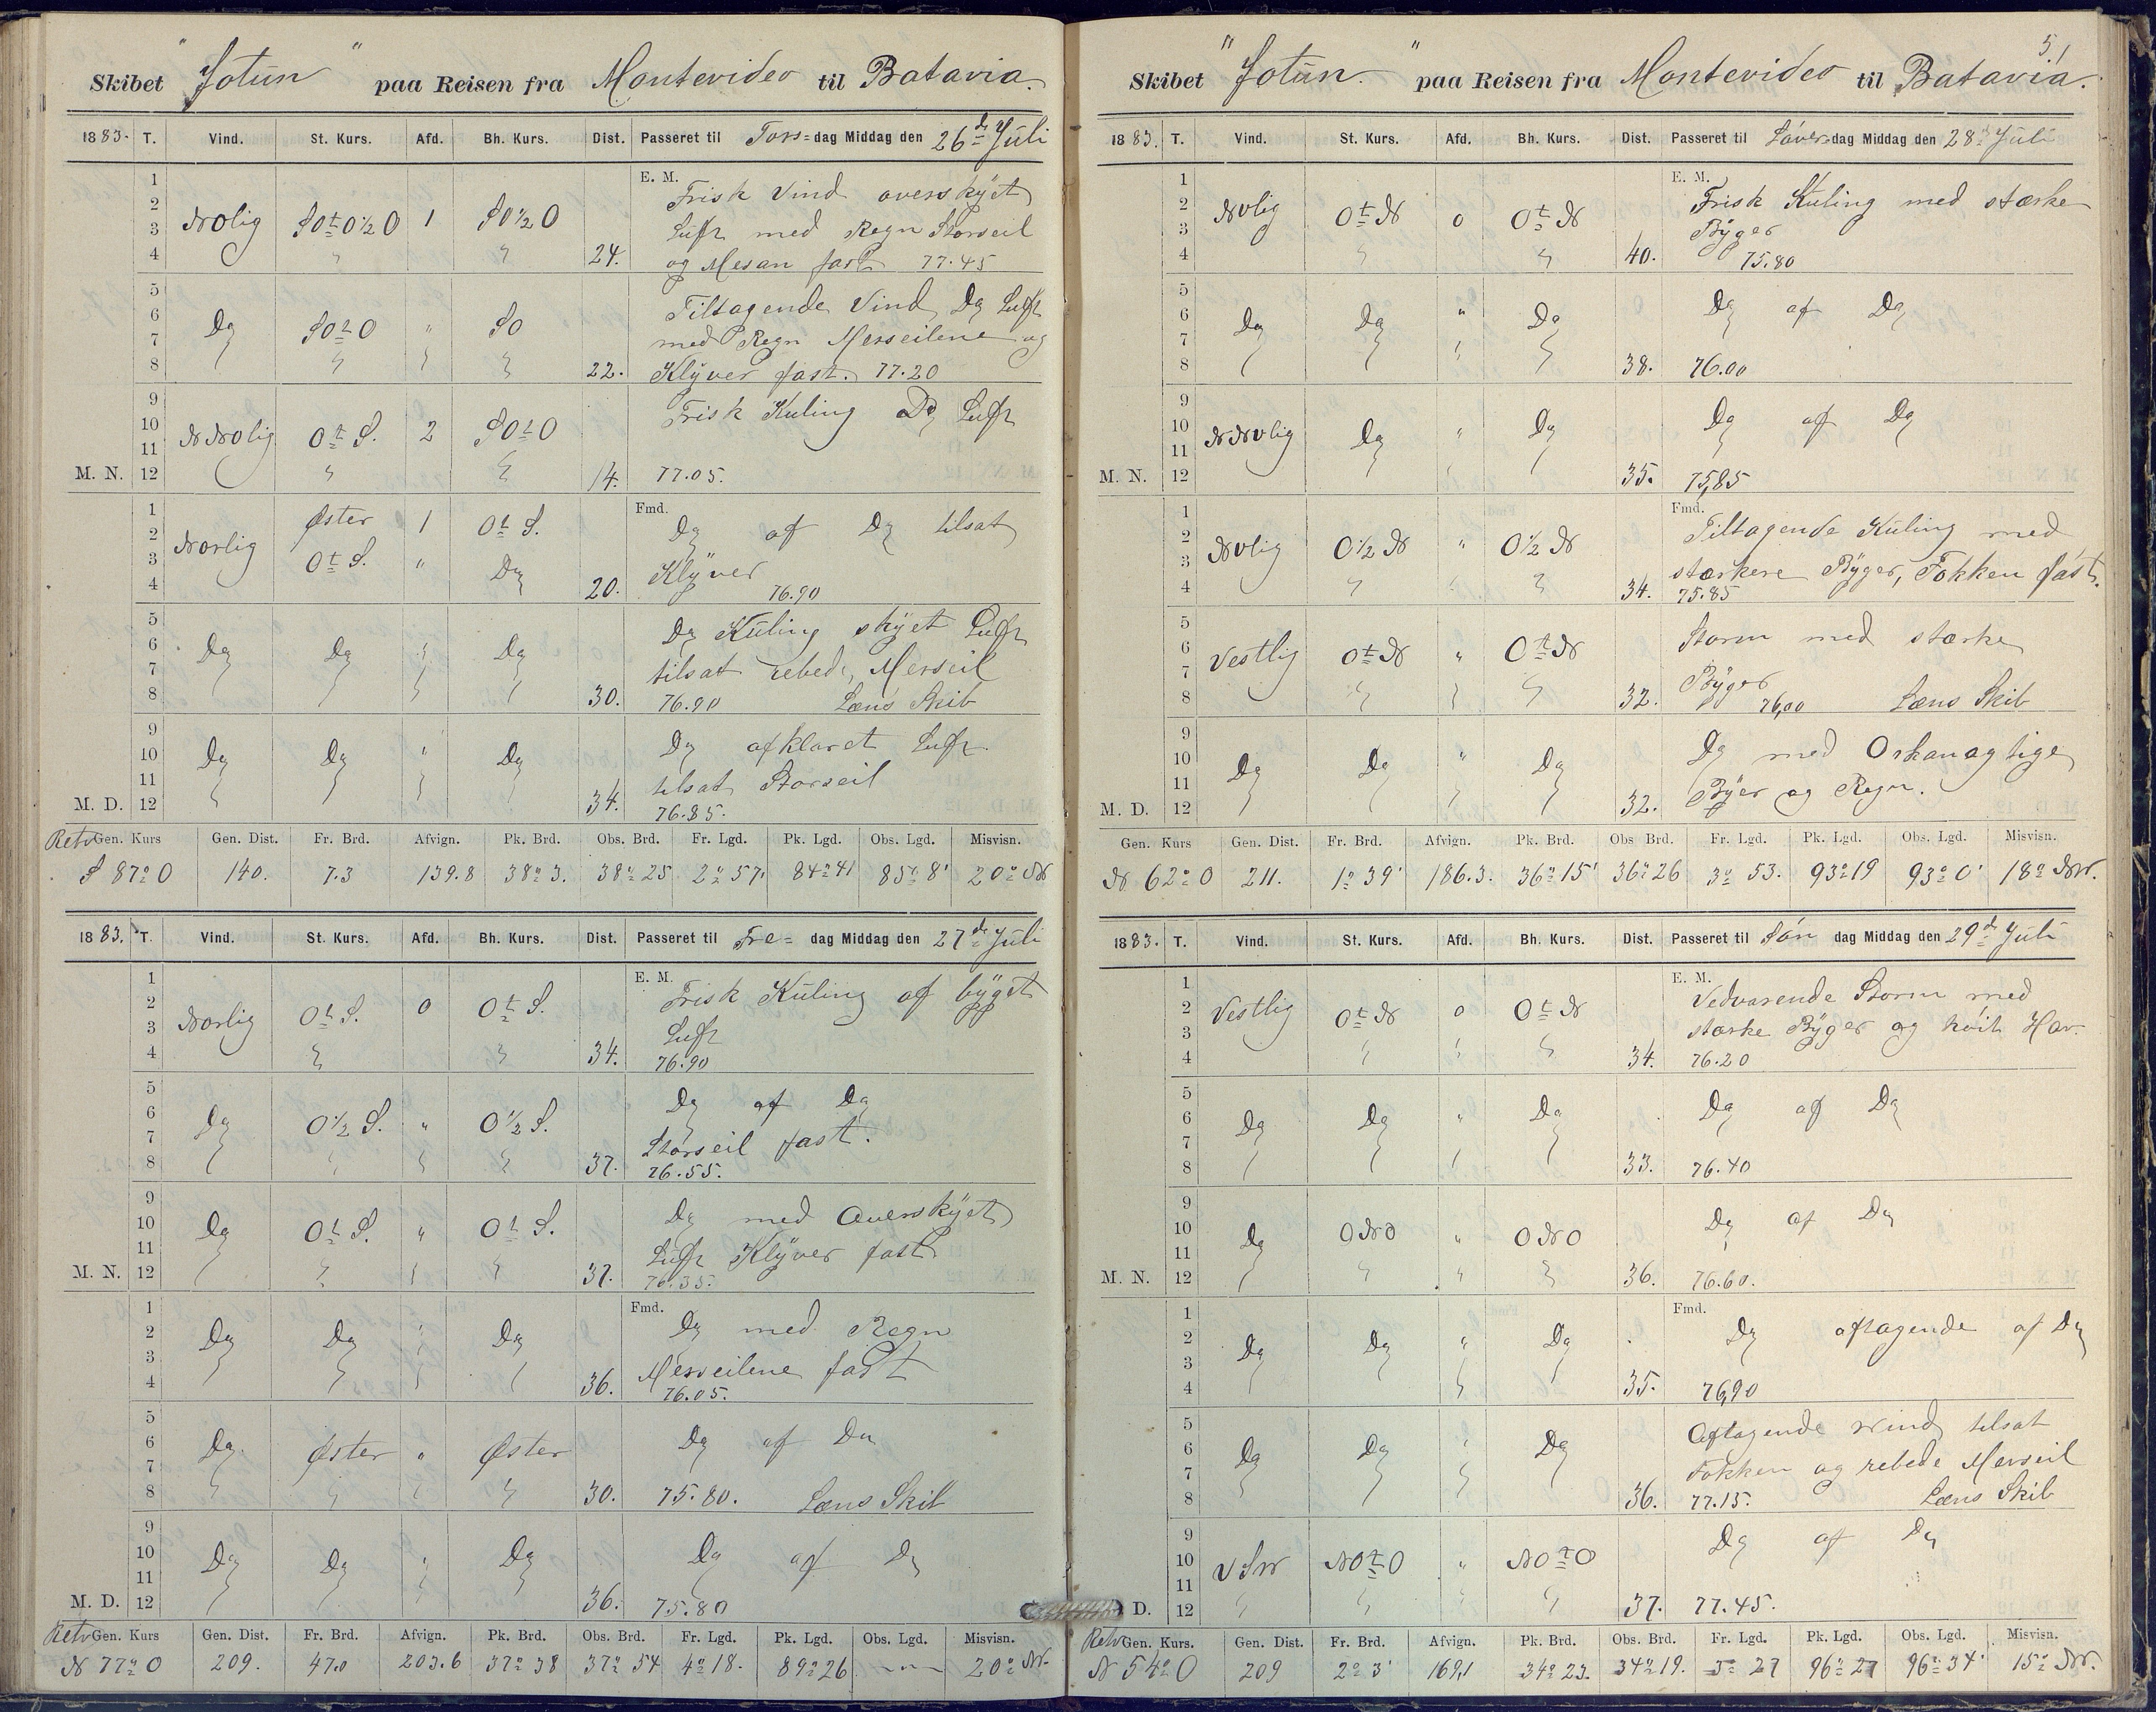 Skibet "Jotun" paa Reisen fra Montevideo til Batavia.
1883. T. Vind. St. Kurs. Afd. Bh. Kurs. Dist. Passeret til Tors=dag Middag den 26de Juli
E. M.
1 Frisk Vind overskyet
2 NOlig SOtO½O 1 SO½O
3 Luft med Regn Storseil
4 24. og Mesan fast 77.45
5 Tiltagende Vind Do Luft
6 Do SOtO " SO
7 med Regn Merseilene og
8 22. Klyver fast. 77.20
9 Frisk Kuling Do Luft
10 NNOlig OtS. 2 SOtO
11
M. N. 12 14. 77.05.
Fmd.
1 Øster 1 OtS. Do af Do tilsat
2 Nordlig
3 OtS. " Do Klyver
4 20. 76.90
5 Do Kuling skyet Luft
6 Do Do " Do
7 tilsat rebede Merseil
8 30. 76.90 Læns Skib
9 Do afklaret Luft
10 Do Do " Do
11 tilsat Storseil
M. D. 12 34. 76.85.
Retv Gen. Kurs Gen. Dist. Fr. Brd. Afvign. Pk. Brd. Obs. Brd. Fr. Lgd. Pk. Lgd. Obs. Lgd. Misvisn.
S 87° O 140. 7.3 139.8 38° 3. 38° 25 2° 57' 84° 41 85° 8' 20° NW
1883. T. Vind. St. Kurs. Afd. Bh. Kurs. Dist. Passeret til Fre= dag Middag den 27de Juli
E. M.
1 Frisk Kuling af byget
2 Nordlig OtS. 0 OtS.
3 Luft
4 34. 76.90
5 Do af Do
6 Do O½S. " O½S.
7 Storseil fast.
8 37. 76.55.
9 Do med Overskyet
10 Do OtS. " OtS.
11 Luft Klyver fast
M. N. 12 37. 76.35.
Fmd.
1 Do med Regn
2 Do Do " Do
3 Merseilene fast
4 36. 76.05.
5 Do af Do
6 Do Øster " Øster
7
8 30. 75.80. Læns Skib
9 Do af Do
10 Do Do " Do
11
M. D. 12 36. 75.80
Retv Gen. Kurs Gen. Dist. Fr. Brd. Afvign. Pk. Brd. Obs. Brd. Fr. Lgd. Pk. Lgd. Obs. Lgd. Misvisn.
N 77° O 209. 47.0 203.6 37° 38 37° 54 4° 18. 89° 26 20° NW.
51
Skibet "Jotun." paa Reisen fra Montevideo til Batavia.
1883. T. Vind. St. Kurs. Afd. Bh. Kurs. Dist. Passeret til Løver=dag Middag den 28de Juli
E. M.
1 Frisk Kuling med stærke
2 NVlig OtN 0 OtN
3 Byger
4 40. 75.80
5 Do af Do
6 Do Do " Do
7
8 38. 76.00
9 Do af Do
10 NNVlig Do " Do
11
M. N. 12 35. 75,85
Fmd.
1 Tiltagende Kuling med
2 NVlig O½N " O½N
3 stærkere Byger, Fokken fast.
4 34. 75.85
5 Storm med stærke
6 Vestlig OtN " OtN
7 Byger
8 32. 76,00 Læns Skib
9 Do med Orkanagtige
10 Do Do " Do
11 Byer og Regn.
M. D. 12 32.
Gen. Kurs Gen. Dist. Fr. Brd. Afvign. Pk. Brd. Obs Brd. Fr. Lgd. Pk. Lgd. Obs. Lgd. Misvisn.
N 62° O 211. 1° 39' 186.3. 36° 15' 36° 26 3° 53. 93° 19 93° 0' 18° NW.
1883. T. Vind. St. Kurs. Afd. Bh. Kurs. Dist. Passeret til Søn dag Middag den 29de Juli
E. M.
1 Vedvarende Storm med
2 Vestlig OtN 0 OtN
3 stærke Byger og høit Hav.
4 34. 76.20
5 Do af Do
6 Do Do " Do
7
8 33. 76.40
9 Do af Do
10 Do ONO " ONO
11
M. N. 12 36. 76.60.
Fmd.
1 Do aftagende af Do
2 Do Do " Do
3
4 35. 76,90
5 Aftagende Vind tilsat
6 Do Do " Do
7 Fokken og rebede Merseil
8 36. 77.15. Læns Skib
9 Do af Do
10 VSW NOtO " NOtO
11
D. 12 37. 77.45.
Retv Gen. Kurs. Gen. Dist. Fr. Brd. Afvign. Pk. Brd. Obs. Brd. Fr. Lgd. Pk. Lgd. Obs. Lgd. Misvisn.
N 54° O 209 2° 3' 169,1 34° 23. 34° 19. 3° 27 96° 27 96° 34' 15° NW.